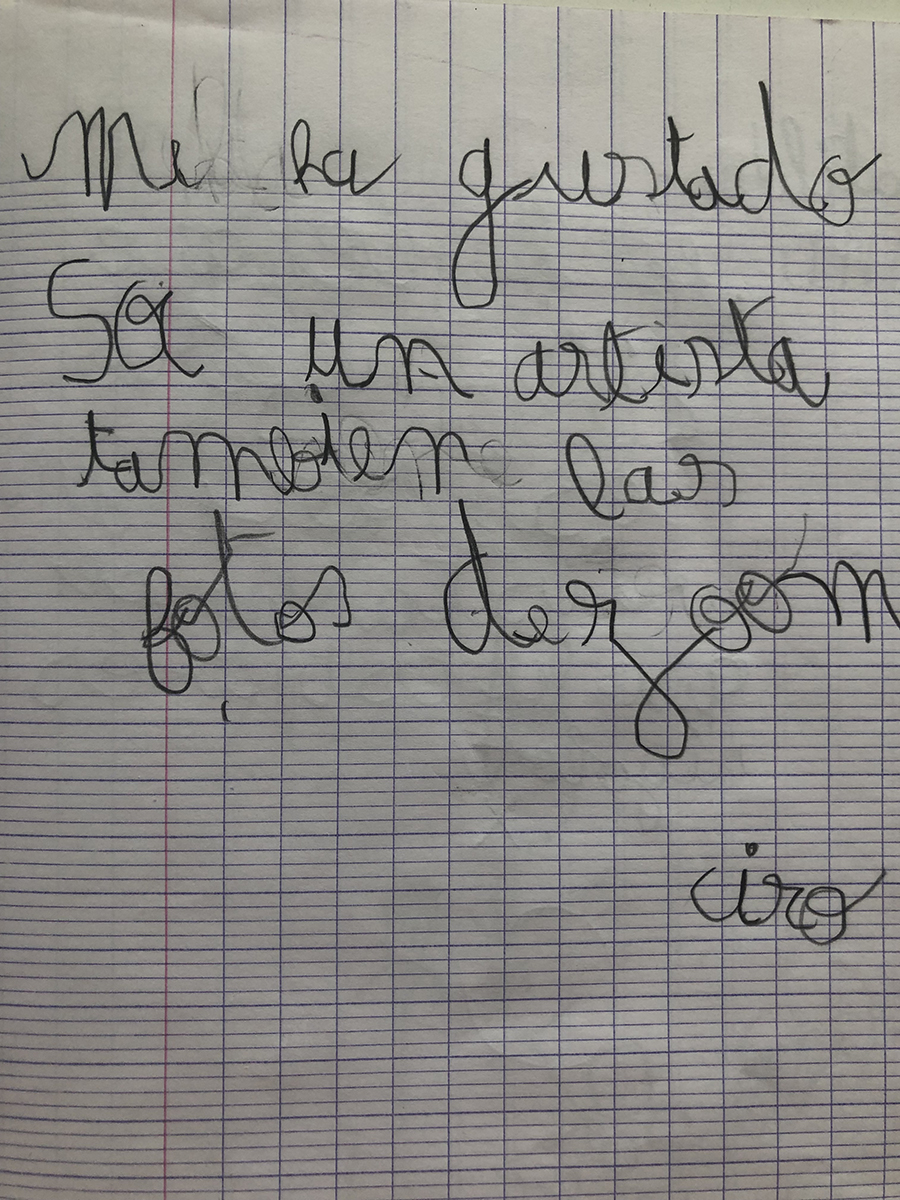 Me ha gustado
Sà un artista
tambiem las
fotos der gom
ciro